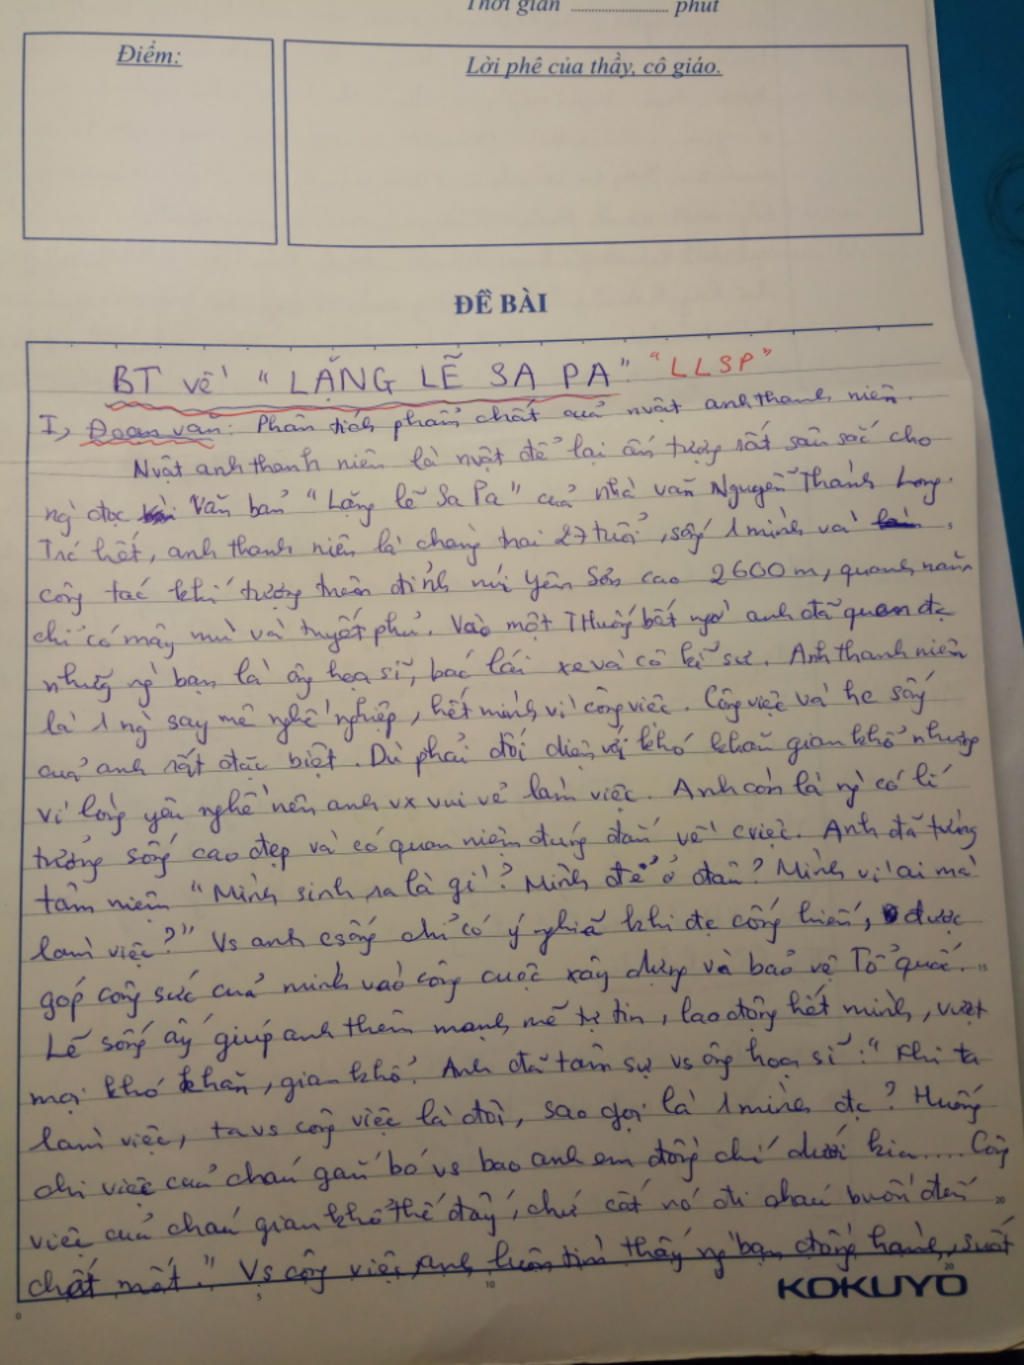 Thời gian ........................ phút
Điểm:
Lời phê của thầy, cô giáo.
ĐỀ BÀI
BT về "LẶNG LẼ SA PA" "LLSP"
I, Đoạn văn: Phân tích phẩm chất của nvật anh thanh niên.
Nvật anh thanh niên là nvật để lại ấn tượng rất sâu sắc cho
ng` đọc Văn bản "Lặng lẽ Sa Pa" của nhà văn Nguyễn Thành Long.
Trc hết, anh thanh niên là chàng trai 27 tuổi, sống 1 mình và
công tác khí tượng trên đỉnh núi Yên Sơn cao 2600m, quanh năm
chỉ có mây mù và tuyết phủ. Vào một THuống bất ngờ anh đã quen đc
những ng` bạn là ông họa sĩ, bác lái xe và cô kĩ sư. Anh thanh niên
là 1 ng` say mê nghề nghiệp, hết mình vì công việc. Công việc và hc sống
của anh rất đặc biệt. Dù phải đối diện với khó khăn gian khổ nhưng
vì lòng yêu nghề nên anh vx vui vẻ làm việc. Anh còn là ng` có lí
tưởng sống cao đẹp và có quan niệm đúng đắn về cviệc. Anh đã từng
tâm niệm "Mình sinh ra là gì? Mình đẻ ở đâu? Mình vì ai mà
làm việc?" Vs anh csống chỉ có ý nghĩa khi đc cống hiến, được
góp công sức của mình vào công cuộc xây dựng và bảo vệ Tổ quốc.
Lẽ sống ấy giúp anh thêm mạnh mẽ tự tin, lao động hết mình, vượt
mọi khó khăn, gian khổ. Anh đã tâm sự vs ông họa sĩ: "Khi ta
làm việc, ta vs công việc là đôi, sao gọi là 1 mình đc? Huống
chi việc của cháu gắn bó vs bao anh em đồng chí dưới kia..... Công
việc của cháu gian khổ thế đấy, chứ cất nó đi cháu buồn đến
chết mất." Vs công việc anh luôn tìm thấy ng` bạn đồng hành, suốt
KOKUYO
0 5 10 20